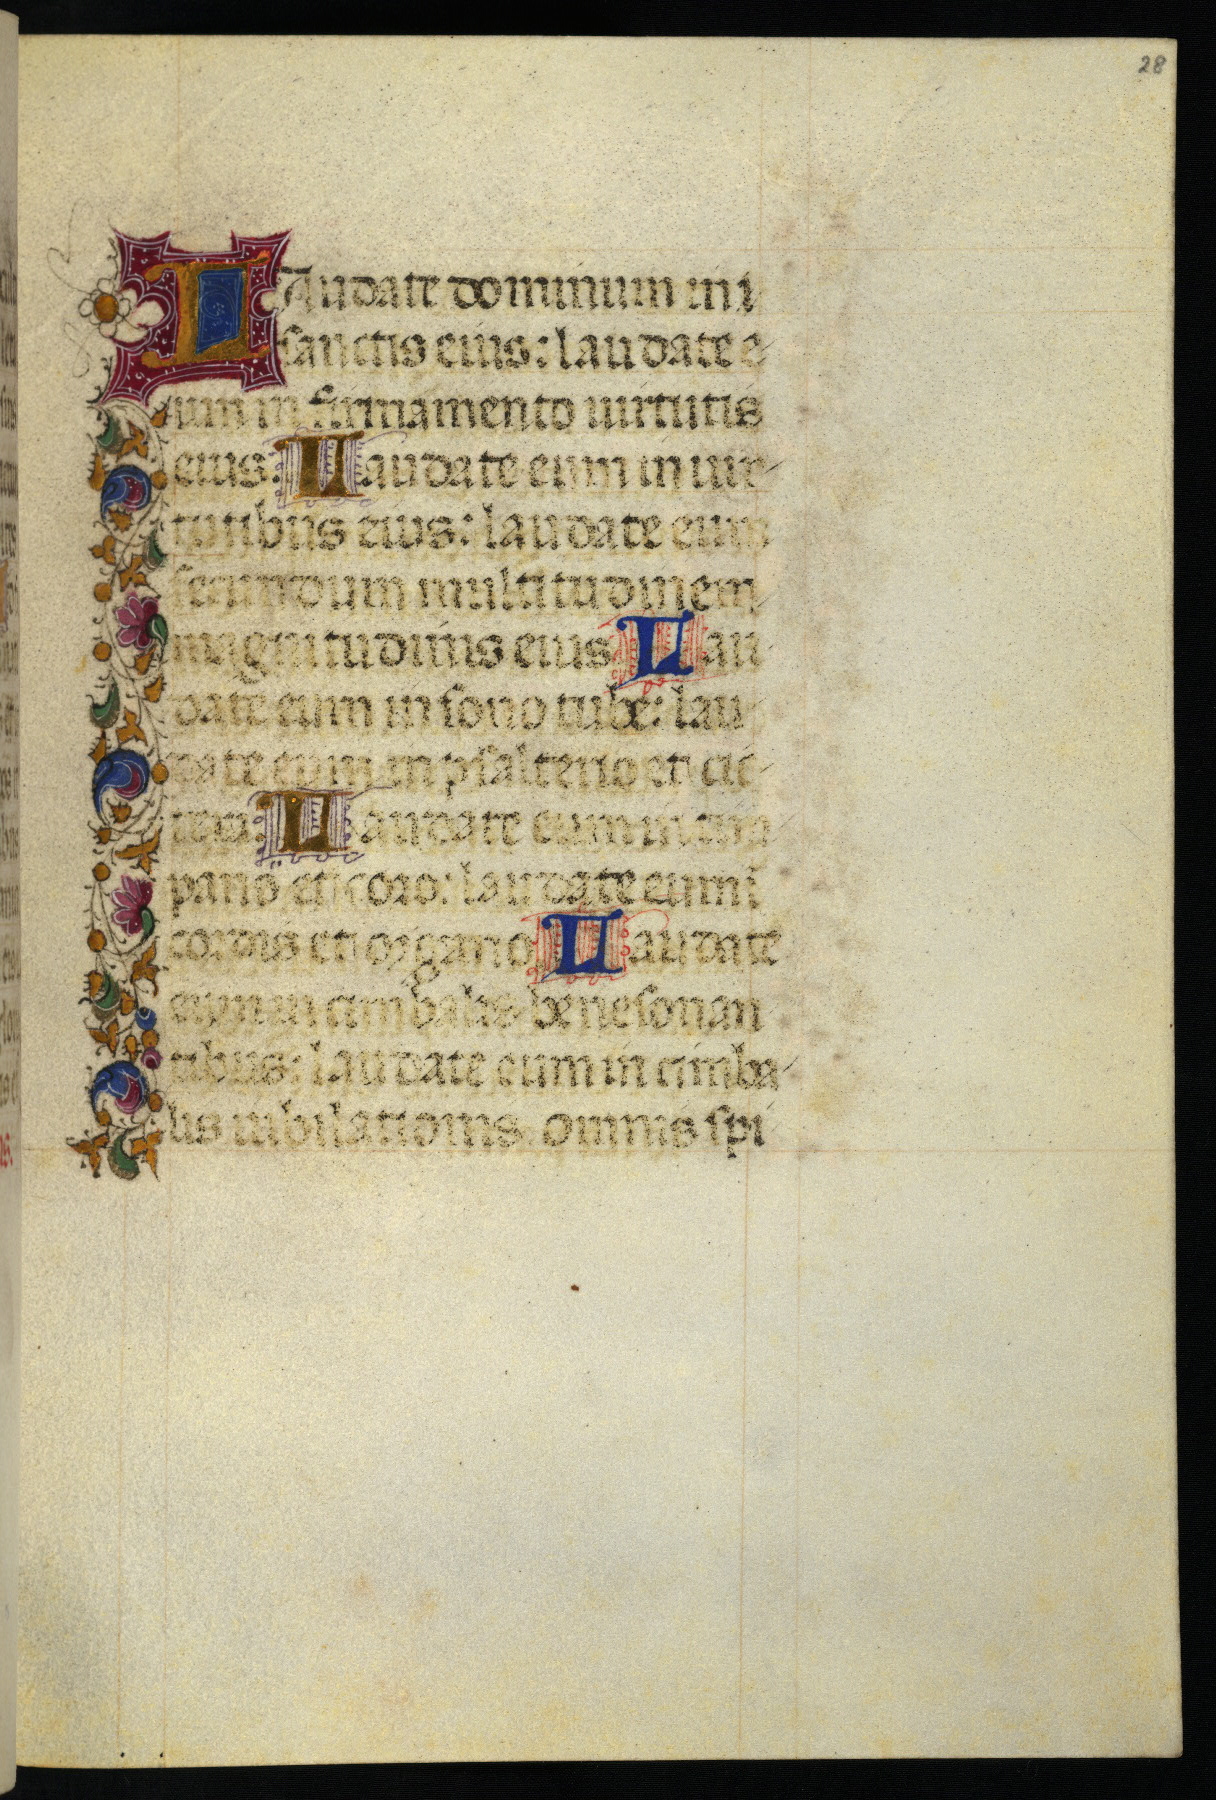 28
LAudate dominum in
sanctis eius: laudate e
um in firmamento uirtutis
eius. Laudate eum in uir
tutibus eius: laudate eum
secundum multitudinem
magnitudinis eius Lau
date eum in sono tube: lau
date eum in psalterio et cit
tera. Laudate eum in tim
pano et coro: laudate eum i
cordis et organo Laudate
eum in cimbalis benesonan
tibus: laudate eum in cimba
lis iubilationis. omnis spi